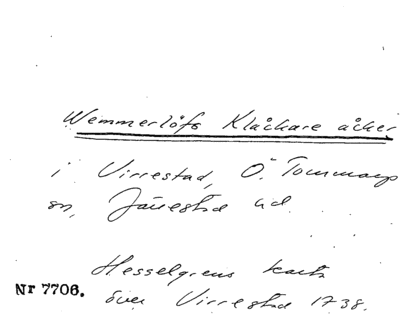 Wemmerlöfs Klåckare åcker
i Virrestad, Ö. Tommarps
sn, Järrestad hd.
Hesselgrens karta
Nr 7706. över Virrestad 1738.